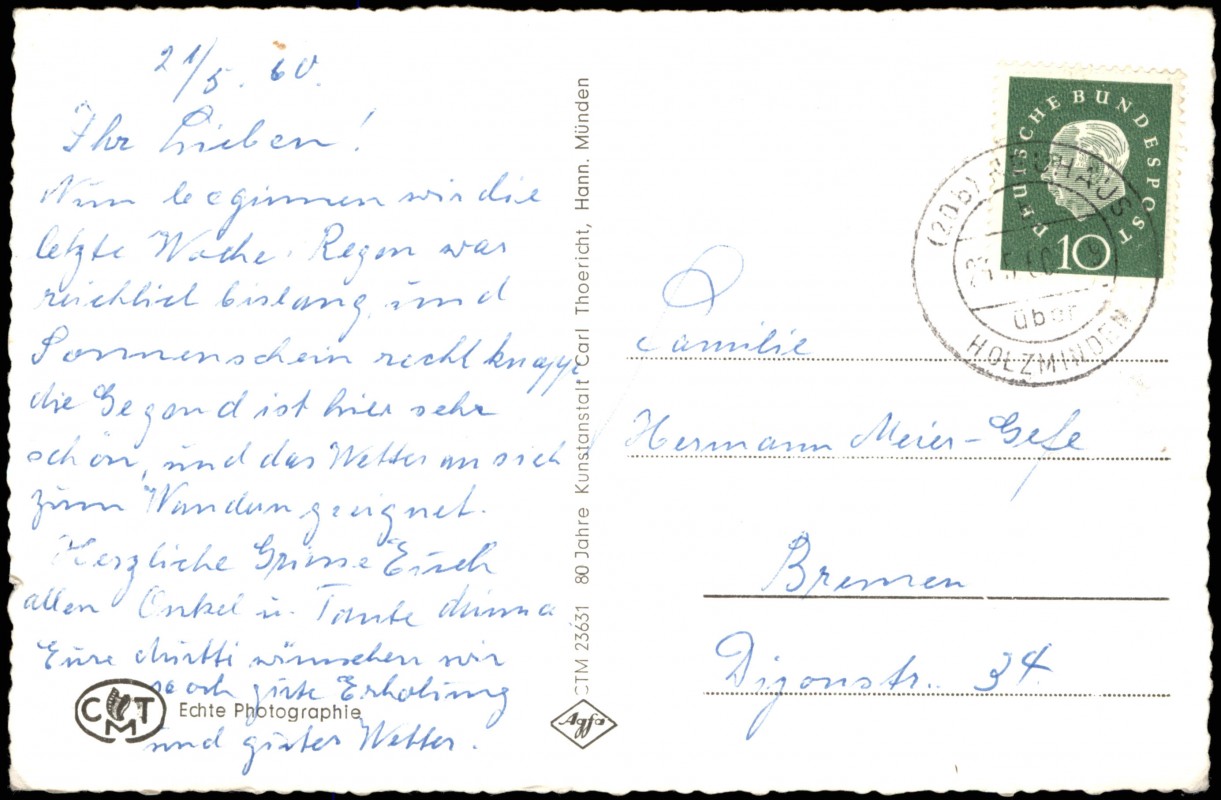 21/5. 60.
Ihr Lieben!
Nun beginnen wir die
letzte Woche. Regen war
reichlich bislang, und
Sonnenschein recht knapp
die Gegend ist hier sehr
schön, und das Wetter an sich
zum Wandern geeignet.
Herzliche Grüsse Euch
allen Onkel u. Tante Minna
Eure Mutti wünschen wir
noch gute Erholung
und gutes Wetter.
CMT
Echte Photographie
CTM 23631 80 Jahre Kunstanstalt Carl Thoericht, Hann. Münden
Agfa
DEUTSCHE BUNDESPOST
10
(20b)
über
HOLZMINDEN
Familie
Hermann Meier-Gefe
Bremen
Dijonstr. 34.